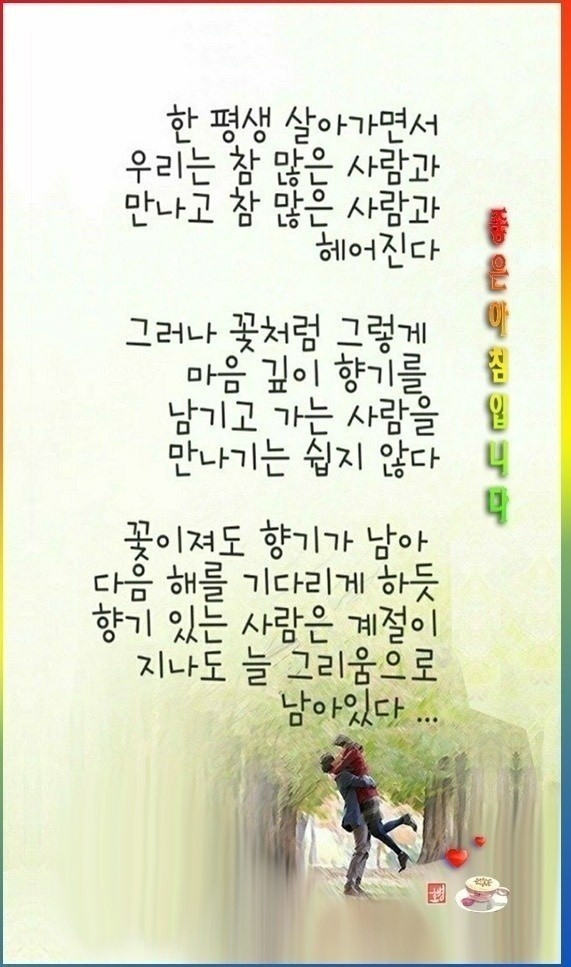 한 평생 살아가면서
우리는 참 많은 사람과
만나고 참 많은 사람과
헤어진다
그러나 꽃처럼 그렇게
마음 깊이 향기를
남기고 가는 사람을
만나기는 쉽지 않다
꽃이져도 향기가 남아
다음 해를 기다리게 하듯
향기 있는 사람은 계절이
지나도 늘 그리움으로
남아있다 ...
좋은아침입니다